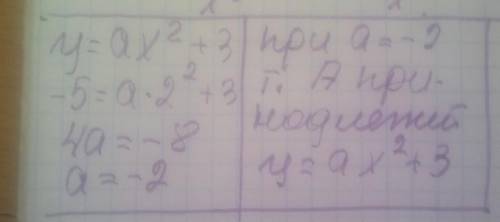 y = ax² + 3
-5 = a · 2² + 3
4a = -8
a = -2
при a = -2
т. А при-
надлежит
y = ax² + 3